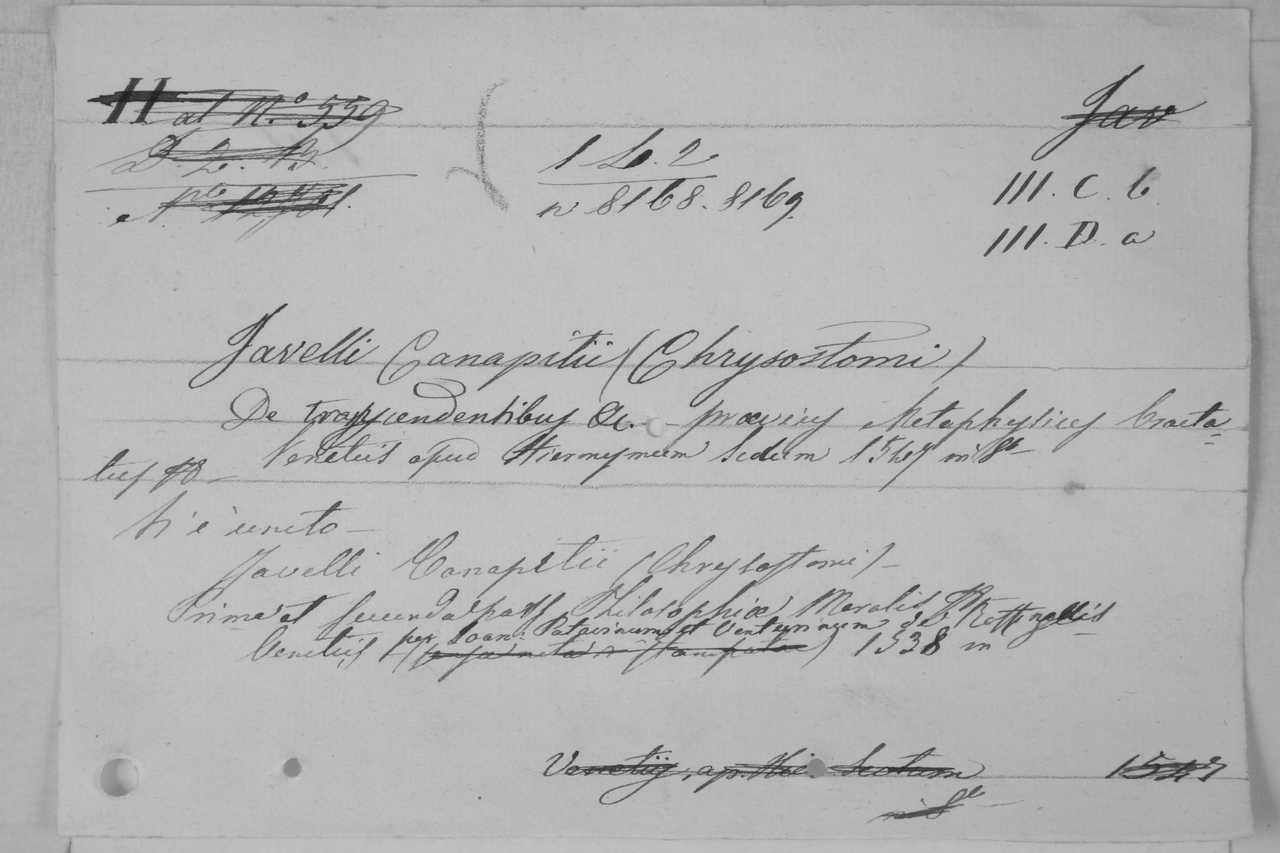 H al N.º 559
D. 2. 13.
1 Lo. 2
n 8168. 8169
Jav
III. C. b
III. D. a
Javelli Canapitii (Chrysostomi)
De transcendentibus &c. prævius Metaphysicus Tracta=
tus
Venetiis apud Hieronymum Scotum 1547 in 8º
Vi è unito —
Javelli Canapitii (Chrysostomi) —
Prima et secunda pars Philosophiæ Moralis
per Joan: Patavinum et Venturinum de Roffinellis
Venetiis 1538 in
Venetiis, ap. Hie. Scotum 1547
in 8º